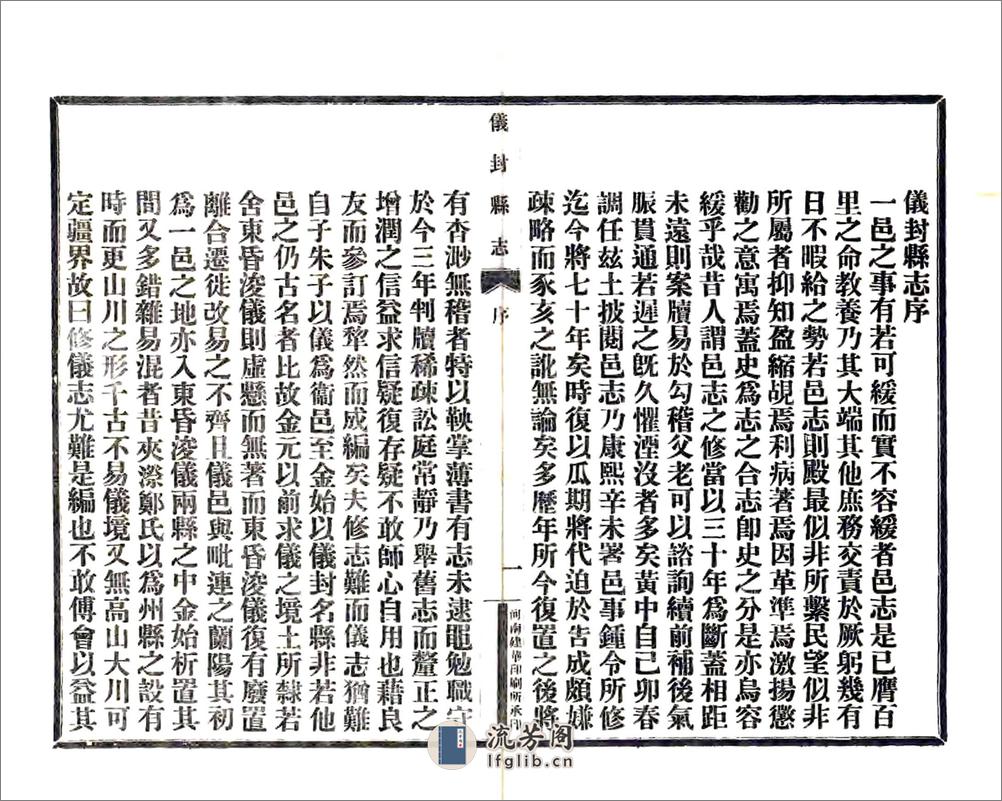 儀封縣志序
一邑之事有若可緩而實不容緩者邑志是已膺百
里之命教養乃其大端其他庶務交責於厥躬幾有
日不暇給之勢若邑志則殿最似非所繫民望似非
所屬者抑知盈縮覘焉利病著焉因革準焉激揚懲
勸之意寓焉蓋史為志之合志卽史之分是亦烏容
緩乎哉昔人謂邑志之修當以三十年為斷蓋相距
未遠則案牘易於勾稽父老可以諮詢續前補後氣
脈貫通若遲之旣久懼湮沒者多矣黃中自己卯春
調任茲土披閱邑志乃康熙辛未署邑事鍾令所修
迄今將七十年矣時復以瓜期將代迫於告成頗嫌
疎略而豕亥之訛無論矣多歷年所今復置之後將
儀封縣志 序 一 河南建華印刷所承印
有杳渺無稽者特以鞅掌薄書有志未逮黽勉職守
於今三年判牘稀疎訟庭常靜乃舉舊志而釐正之
增潤之信益求信疑復存疑不敢師心自用也藉良
友而參訂焉犂然而成編矣夫修志難而儀志猶難
自子朱子以儀為衞邑至金始以儀封名縣非若他
邑之仍古名者比故金元以前求儀之境土所隸若
舍東昏浚儀則虛懸而無著而東昏浚儀復有廢置
離合遷徙改易之不齊且儀邑與毗連之蘭陽其初
為一邑之地亦入東昏浚儀兩縣之中金始析置其
間又多錯雜易混者昔夾漈鄭氏以為州縣之設有
時而更山川之形千古不易儀境又無高山大川可
定疆界故曰修儀志尤難是編也不敢傅會以益其
流芳阁
lfglib.cn